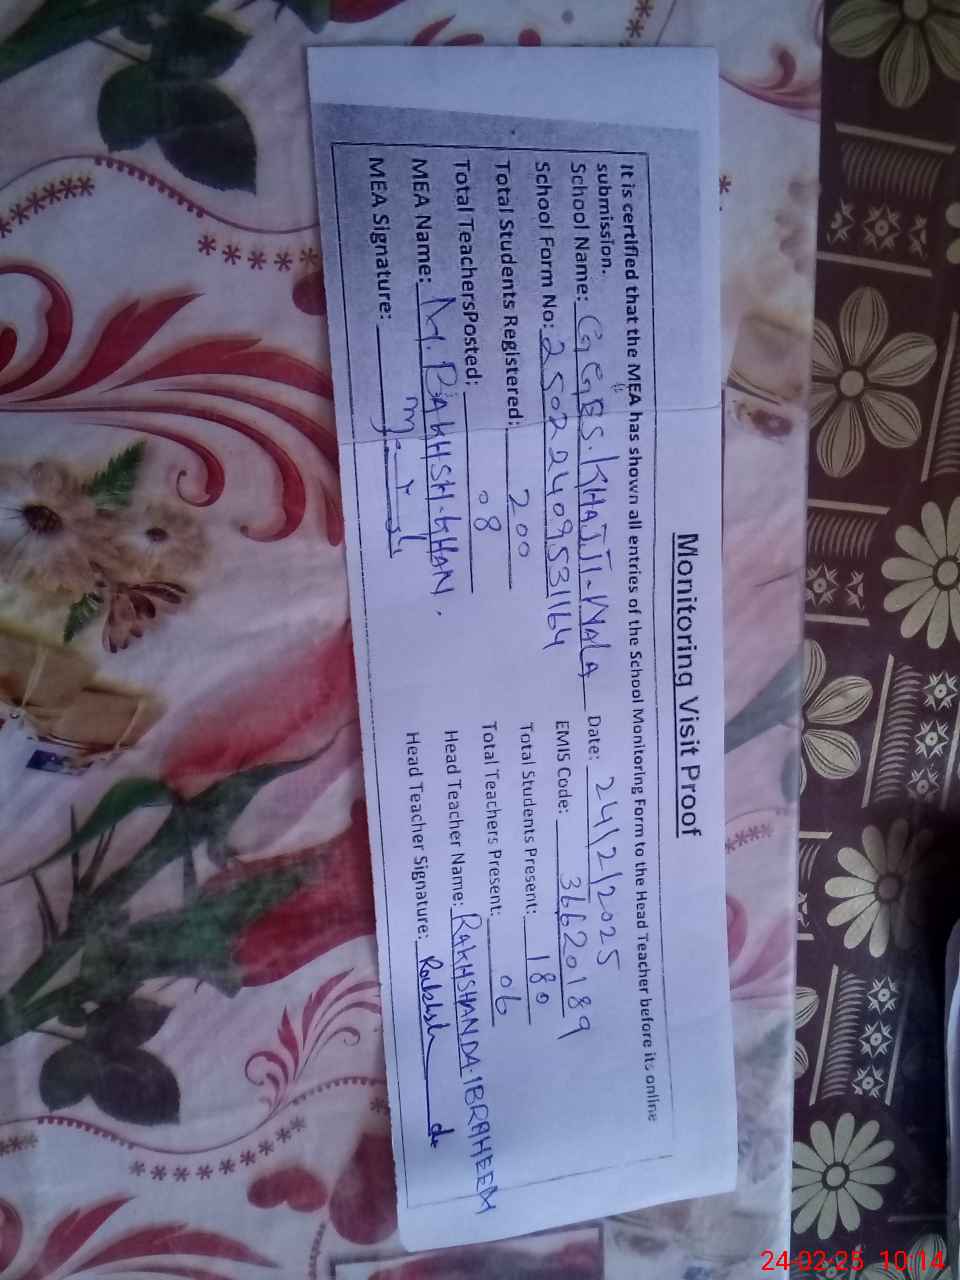 Monitoring Visit Proof
It is certified that the MEA has shown all entries of the School Monitoring Form to the Head Teacher before its online
submission.
School Name: GGES. KHAJJI-WALA Date: 24/2/2025
School Form No: 25022409531164 EMIS Code: 36620189
Total Students Registered: 200 Total Students Present: 180
Total TeachersPosted: 08 Total Teachers Present: 06
MEA Name: M. BAKHSH-KHAN. Head Teacher Name: RAKHSHANDA.IBRAHEEM
MEA Signature: Head Teacher Signature:
24-02-25 10:14